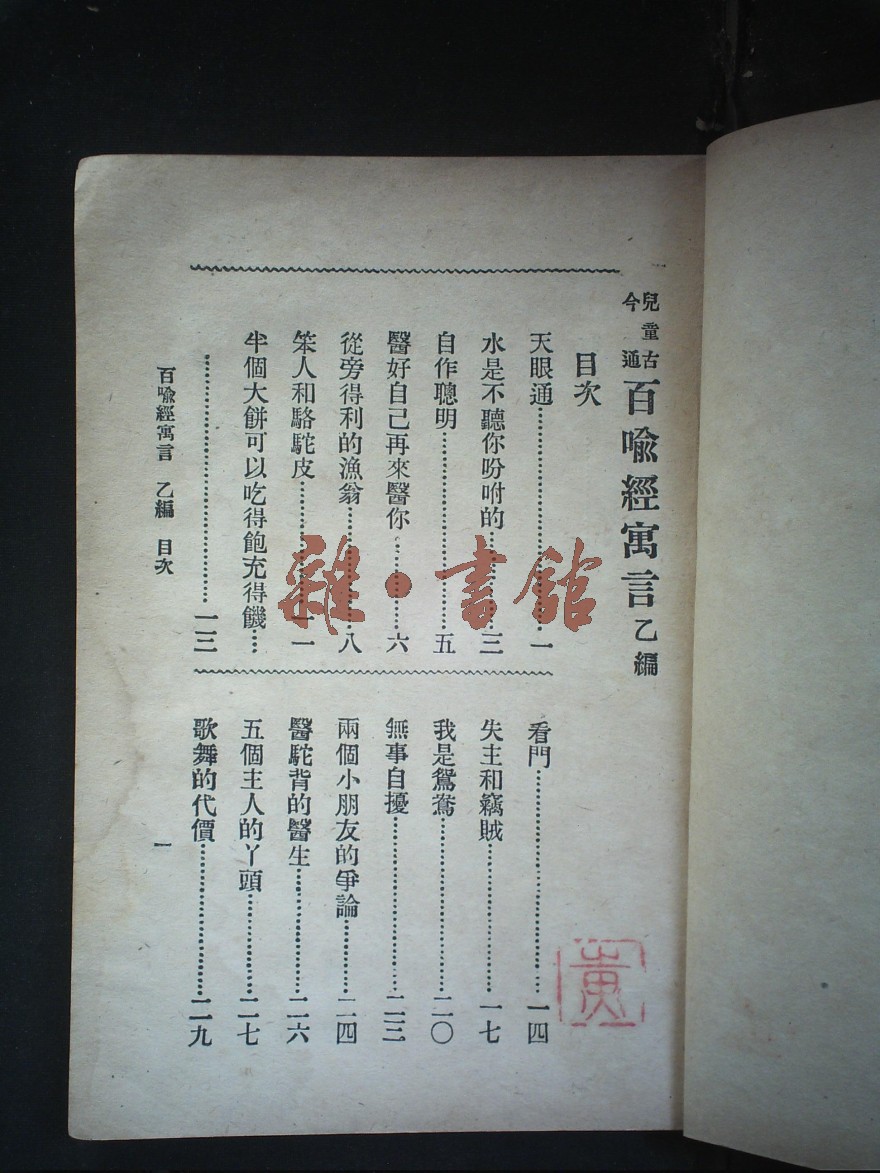 兒童古今通
百喩經寓言 乙編
目次
天眼通……一
水是不聽你吩咐的……三
自作聰明……五
醫好自己再來醫你……六
從旁得利的漁翁……八
笨人和駱駝皮……一一
半個大餅可以吃得飽充得饑……
……一三
看門……一四
失主和竊賊……一七
我是鴛鴦……二〇
無事自擾……二三
兩個小朋友的爭論……二四
醫駝背的醫生……二六
五個主人的丫頭……二七
歌舞的代價……二九
百喩經寓言 乙編 目次
一
雜·書館
黄